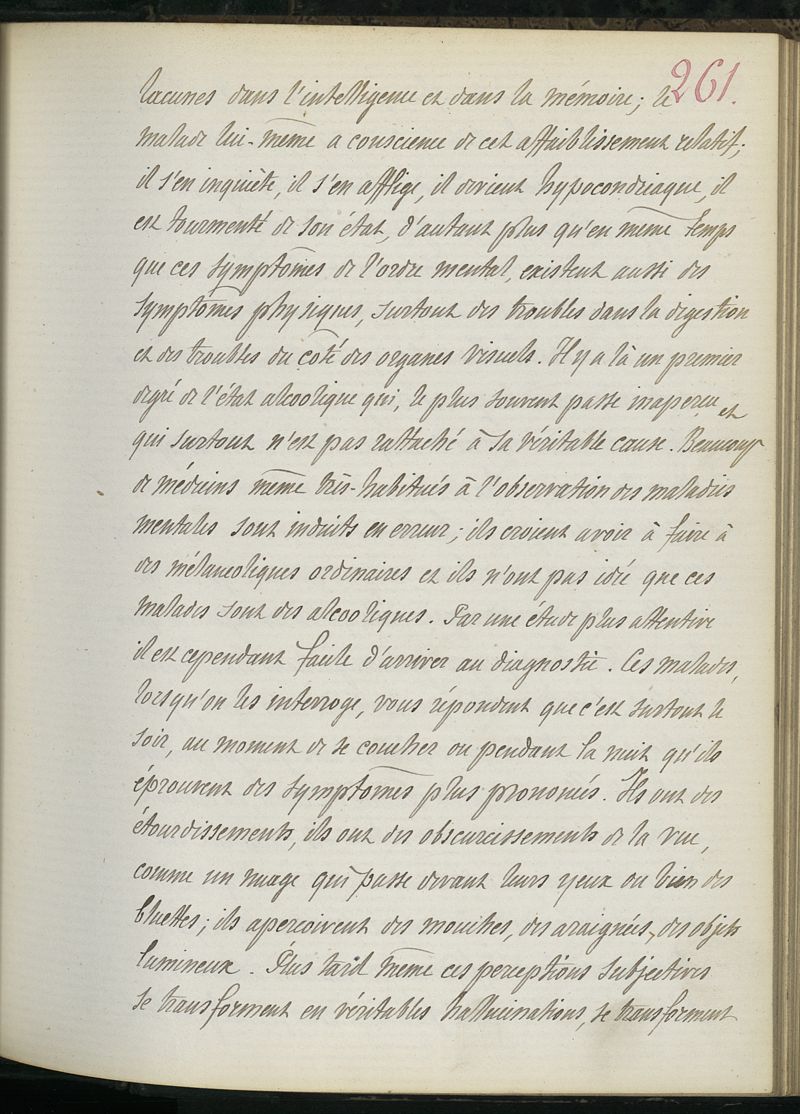 261.
lacunes dans l'intelligence et dans la mémoire; le
malade lui-même a conscience de cet affaiblissement relatif;
il s'en inquiète, il s'en afflige, il devient hypocondriaque, il
est tourmenté de son état, d'autant plus qu'en même temps
que ces symptômes de l'ordre mental, existent aussi des
symptômes physiques, surtout des troubles dans la digestion
et des troubles du côté des organes visuels. Il y a là un premier
degré de l'état alcoolique qui, le plus souvent passe inaperçu et
qui surtout n'est pas rattaché à sa véritable cause. Beaucoup
de médecins même très-habitués à l'observation des maladies
mentales sont induits en erreur; ils croient avoir à faire à
des mélancoliques ordinaires et ils n'ont pas idée que ces
malades sont des alcooliques. Par une étude plus attentive
il est cependant facile d'arriver au diagnostic. Ces malades,
lorsqu'on les interroge, vous répondent que c'est surtout le
soir, au moment de se coucher ou pendant la nuit qu'ils
éprouvent des symptômes plus prononcés. Ils ont des
étourdissements, ils ont des obscurcissements de la vue,
comme un nuage qui passe devant leurs yeux ou bien des
bluettes; ils aperçoivent des mouches, des araignées, des objets
lumineux. Plus tard même ces perceptions subjectives
se transforment en véritables hallucinations, se transforment